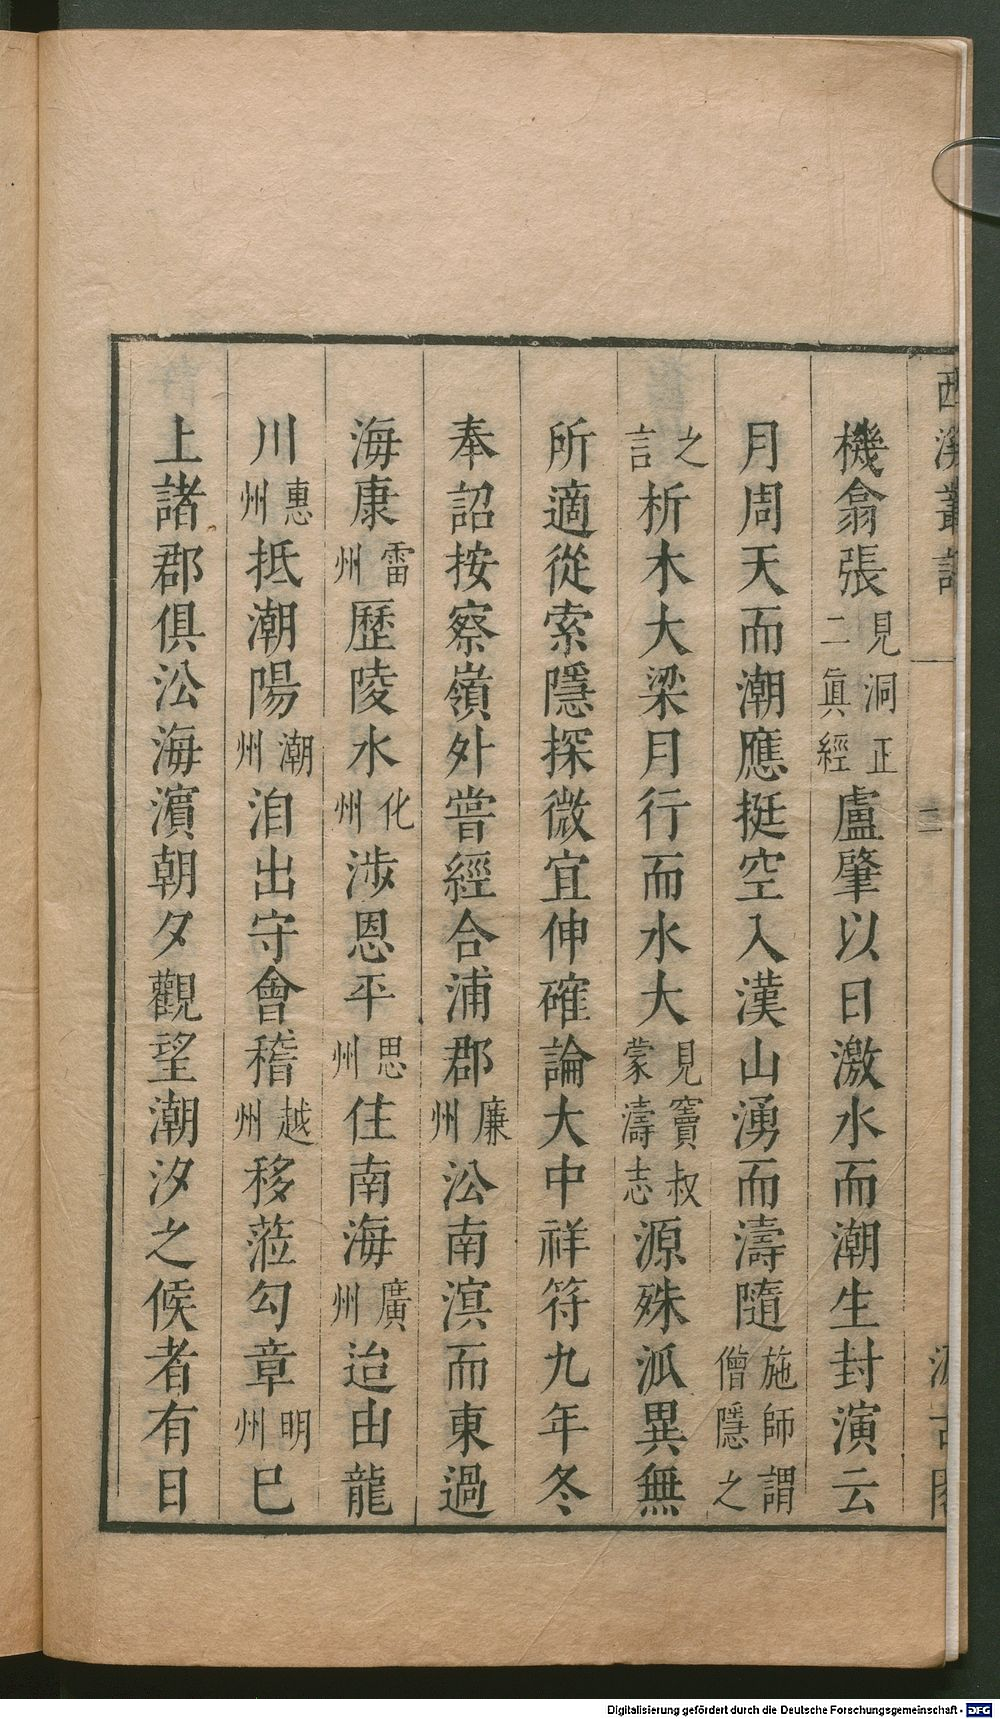 西溪叢語 二 汲古閣
機翁張見洞正二眞經盧肇以日激水而潮生封演云
月周天而潮應挺空入漢山湧而濤隨施師謂僧隱之
之言析木大梁月行而水大見竇叔蒙濤志源殊泒異無
所適從索隱探微宜伸確論大中祥符九年冬
奉詔按察嶺外嘗經合浦郡廉州㳂南溟而東過
海康雷州歷陵水化州涉恩平思州住南海廣州迨由龍
川惠州抵潮陽潮州洎出守會稽越州移蒞勾章明州巳
上諸郡俱㳂海濱朝夕觀望潮汐之候者有日
Digitalisierung gefördert durch die Deutsche Forschungsgemeinschaft - DFG